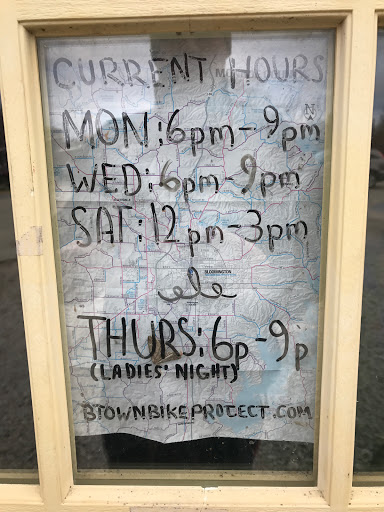 CURRENT HOURS
MON: 6pm-9pm
WED: 6pm-9pm
SAT: 12pm-3pm
BLOOMINGTON
THURS: 6p-9p
(LADIES' NIGHT)
BTOWNBIKEPROJECT.COM